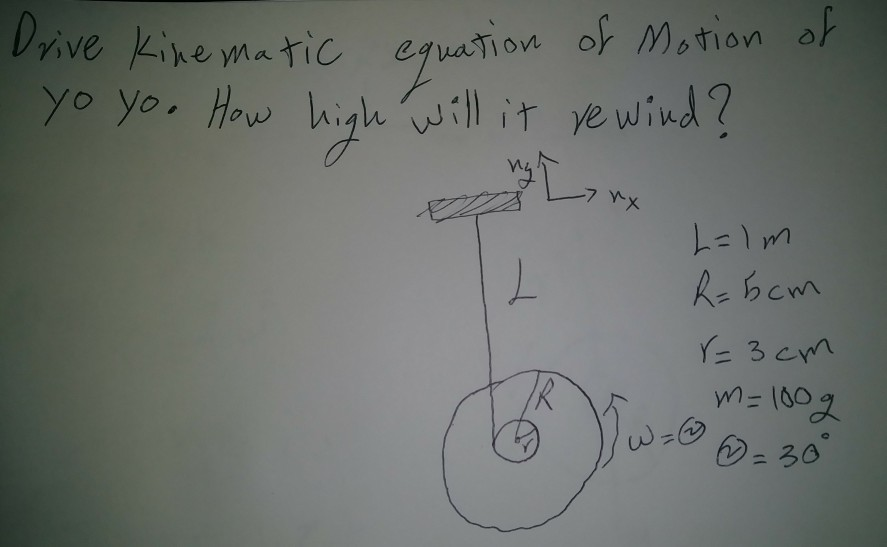 Drive Kinematic equation of Motion of
yo yo. How high will it rewind?
ny
nx
L = 1 m
L
R = 5 cm
r = 3 cm
R
m = 100 g
r
ω =
= 30°